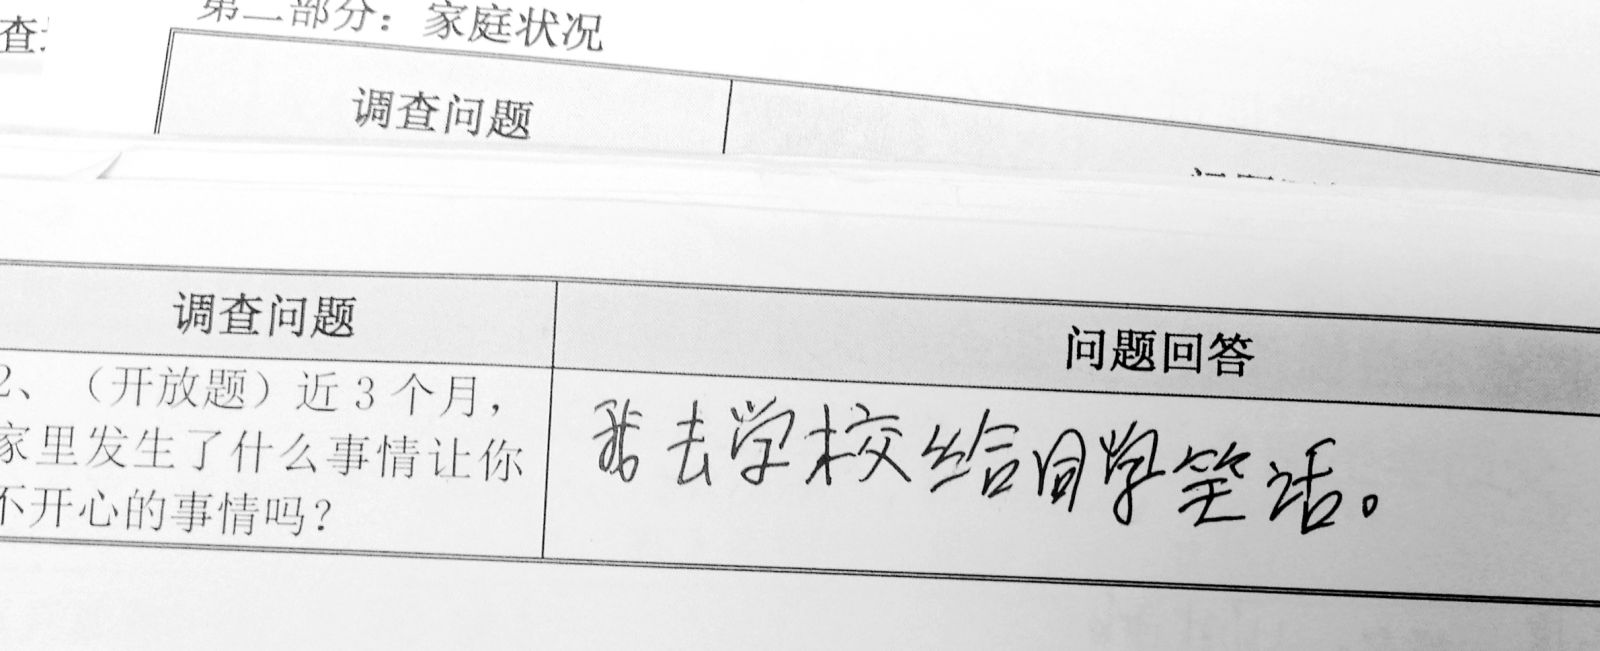 第二部分：家庭状况
查
调查问题
调查问题
问题回答
2、（开放题）近3个月，
家里发生了什么事情让你
不开心的事情吗？
我去学校给同学笑话。